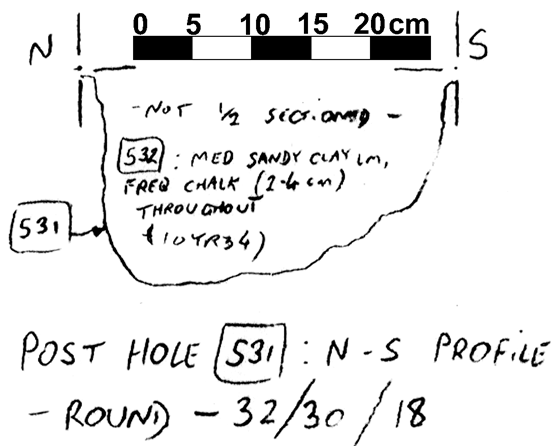 0 5 10 15 20cm
N S
-NOT 1/2 SECTIONED -
532 : MED SANDY CLAY LM,
FREQ CHALK (2-4cm)
THROUGHOUT
531
(10YR34)
POST HOLE 531 : N-S PROFILE
- ROUND - 32/30/18